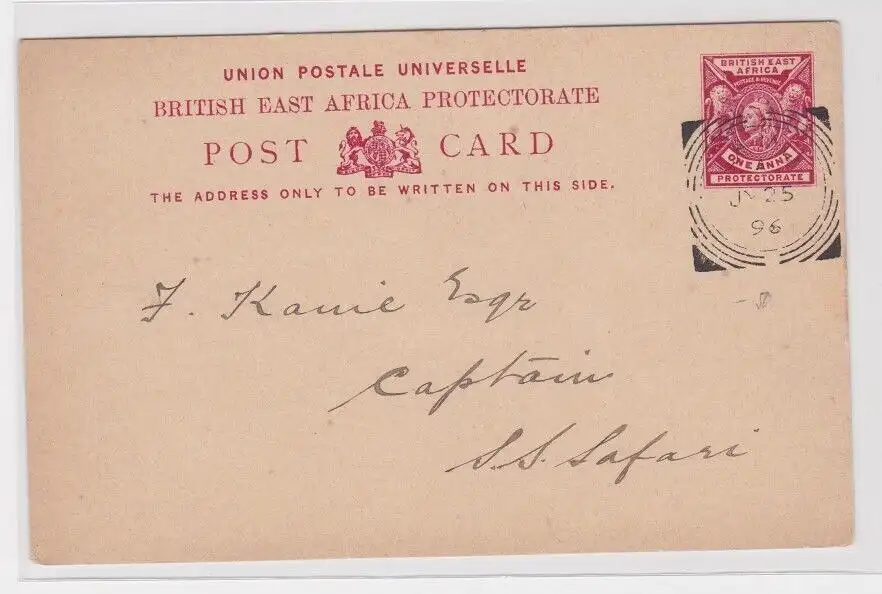 UNION POSTALE UNIVERSELLE
BRITISH EAST AFRICA PROTECTORATE
POST CARD
THE ADDRESS ONLY TO BE WRITTEN ON THIS SIDE.
BRITISH EAST
AFRICA
POSTAGE & REVENUE
ONE ANNA
PROTECTORATE
JY 25
96
F. Kanie Esqr
Captain
S.S. Safari